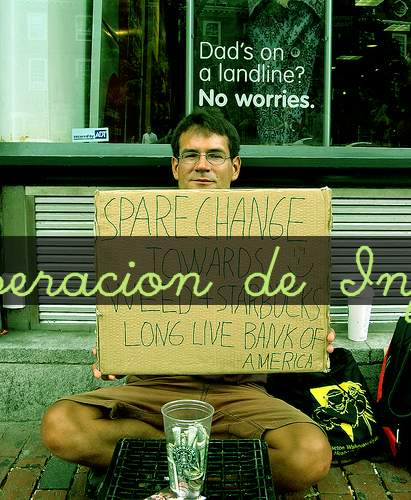 Dad's on
a landline?
No worries.
ADT
SPARE CHANGE
TOWARDS
WEED + STARBUCKS
LONG LIVE BANK OF
AMERICA
eracion de In